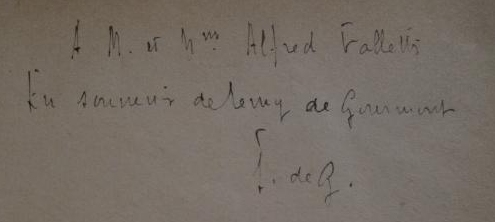 A M. et Mme Alfred Vallette
En souvenir de Remy de Gourmont
J. de G.